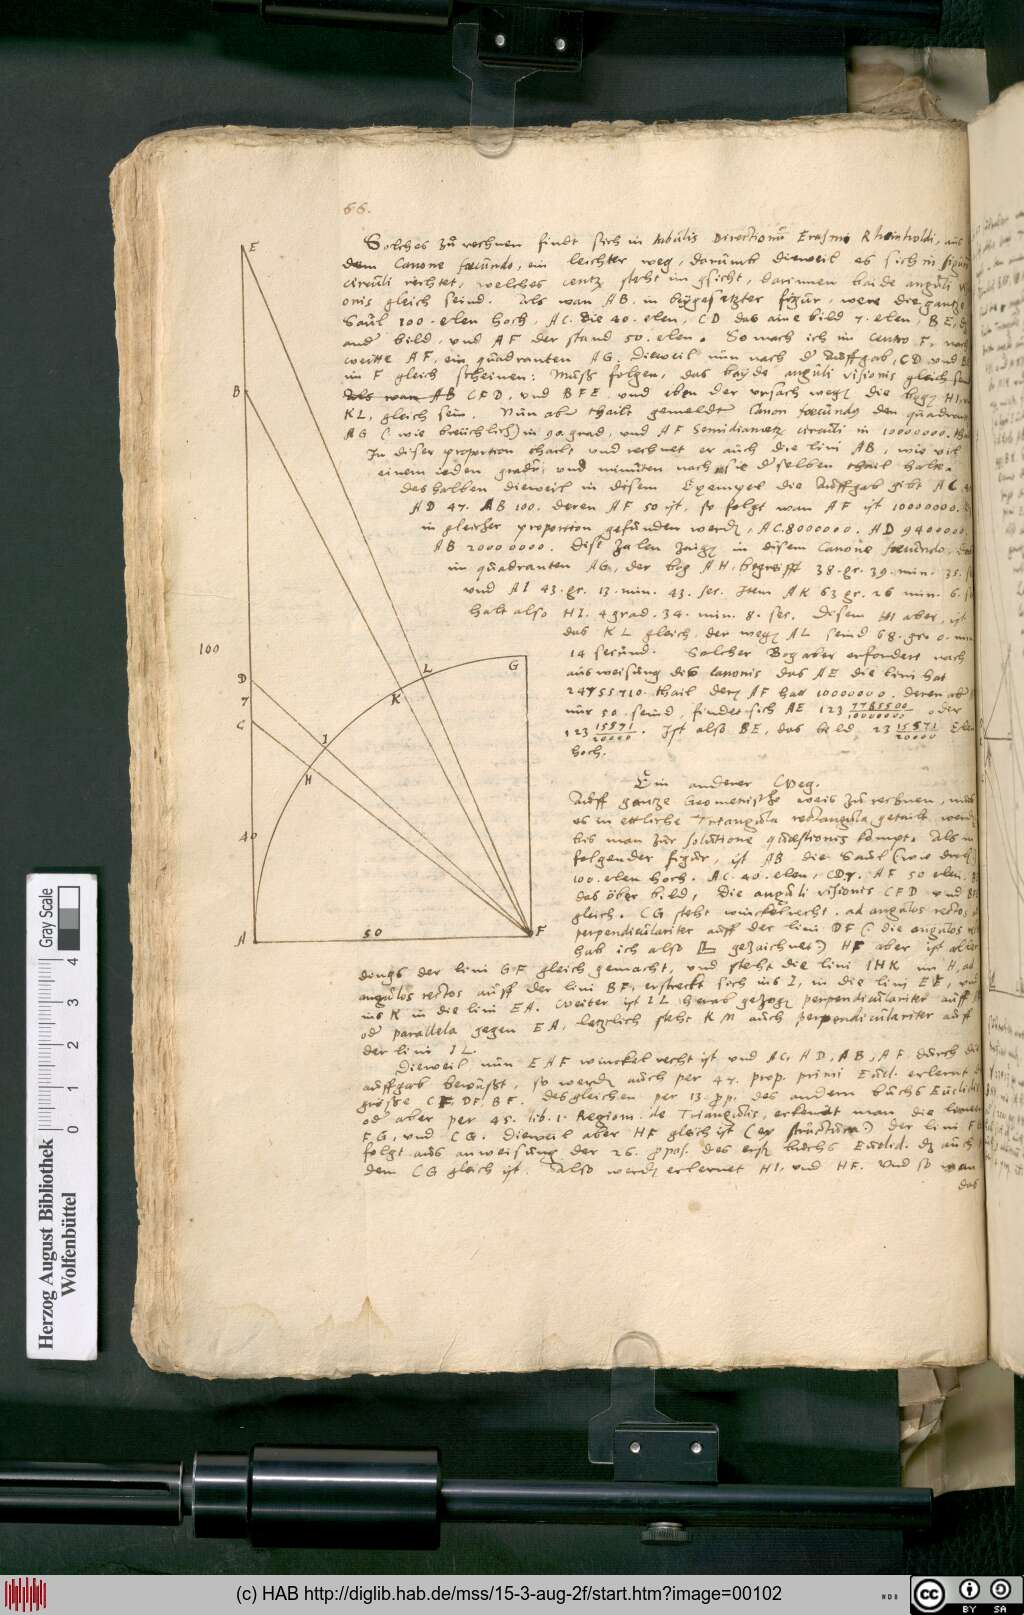 66.
Solches zů rechnen findt sich in tabulis Directionū Erasmi Rheinholdi, aus
dem Canone fœcundo, ein leichter weg, darumb dieweil es sich in
circuli rechtet, welches centz steht im gsicht, darinnen baide anguli
onis gleich seind. Als wan AB. in beygesetzter figur, were die gantze
Saul 100. elen hoch, AC. die 40. elen, CD das aine bild 7. elen, BE,
ander bild, und AF der stand 50. elen. So mach ich im Centro F, nach
weitte AF, ein quadranten AG. Dieweil nun nach d' Auffgab, CD und
im F gleich scheinen: Muß folgen, das bayde anguli visionis gleich
Als wan AB CFD, und BFE. und eben der ursach wegē die bogē HI,
KL, gleich sein. Nun aber thailt gemeldter Canon fœcundus den
AG (: wie breuchlich) in 90. grad, und AF Semidiametrꝫ circuli in 10000000.
In diser proportion thailt und rechnet er auch die lini AB, wie vil
einem ieden grad, und minuten nach sie d'selben thail halte.
deshalben dieweil in disem Exempel die Auffgab gibt AC
AD 47. AB 100. deren AF 50 ist, so folgt wan AF ist 10000000.
in gleicher proportion gefunden werdē, AC. 8000000, AD 9400000.
AB 20000000. Dise zalen zaigē in disem Canone fœcundo,
im quadranten AG, der bog AH, begreifft 38. gr. 39. min. 35.
und AI 43. gr. 13. min. 43. sec. Item AK 63 gr. 26 min. 6.
halt also HI. 4 grad. 34. min. 8. sec. Disem HI aber, ist
das KL gleich. der wegē AL seind 68. gr. 0. min
14 secund. Solcher Bog aber erfordert nach
ausweisung des Canonis das AE die lini hat
24755710. thail derē AF hat 10000000. deren aber
nur 50. seind, findet sich AE 123 7785500/10000000 oder
123 15571/20000. Ist also BE, das bild 23 15571/20000 Elen
hoch.
Ein anderer Weg.
Auff gantze Geometrische weis zu rechnen,
es in ettliche Triangula rectangula getailt
bis man zur solutione quæstionis kompt. Als in
folgender figur, ist AB die Saul (wie droben)
100. elen hoch. AC. 40. elen, CD 7. AF 50 elen.
das öber bild, Die anguli visionis CFD und
gleich. CG steht winckelrecht. ad angulos rectos
perpendiculariter auff der lini DF (: die angulos
hab ich also gezaichnet:) HF aber ist
dings der lini GF gleich gemacht, und steht die lini IHK im H, ad
angulos rectos auff der lini BF, erstreckt sich ins I, in die lini EF, und
ins K in die lini EA. Weiter ist IL herab gezogē perpendiculariter auff
od' parallela gegen EA, letzlich steht KM auch perpendiculariter auff
der lini IL.
Dieweil nun EAF winckelrecht ist und AC, AD, AB, AF durch die
auffgab bewüßt, so werdē auch per 47. prop. primi Eucl. erlernt
größe CF, DF, BF. desgleichen per 13. prop. des andern buchs Euclidis
od' aber per 45. lib. 1. Regiom. de Triangulis, erkendt man die
FG, und CG. Dieweil aber HF gleich ist (ex structura) der lini
folgt aus anweisung der 26. propos. des erstē buchs Euclid. dʒ auch
dem CG gleich ist. Also werdē erlernet HI. und HF. Und so man
das
E
B
100
D
7
C
40
A
50
F
G
L
K
I
H
Gray Scale
0 1 2 3 4
Herzog August Bibliothek
Wolfenbüttel
(c) HAB http://diglib.hab.de/mss/15-3-aug-2f/start.htm?image=00102
WDB
cc BY SA